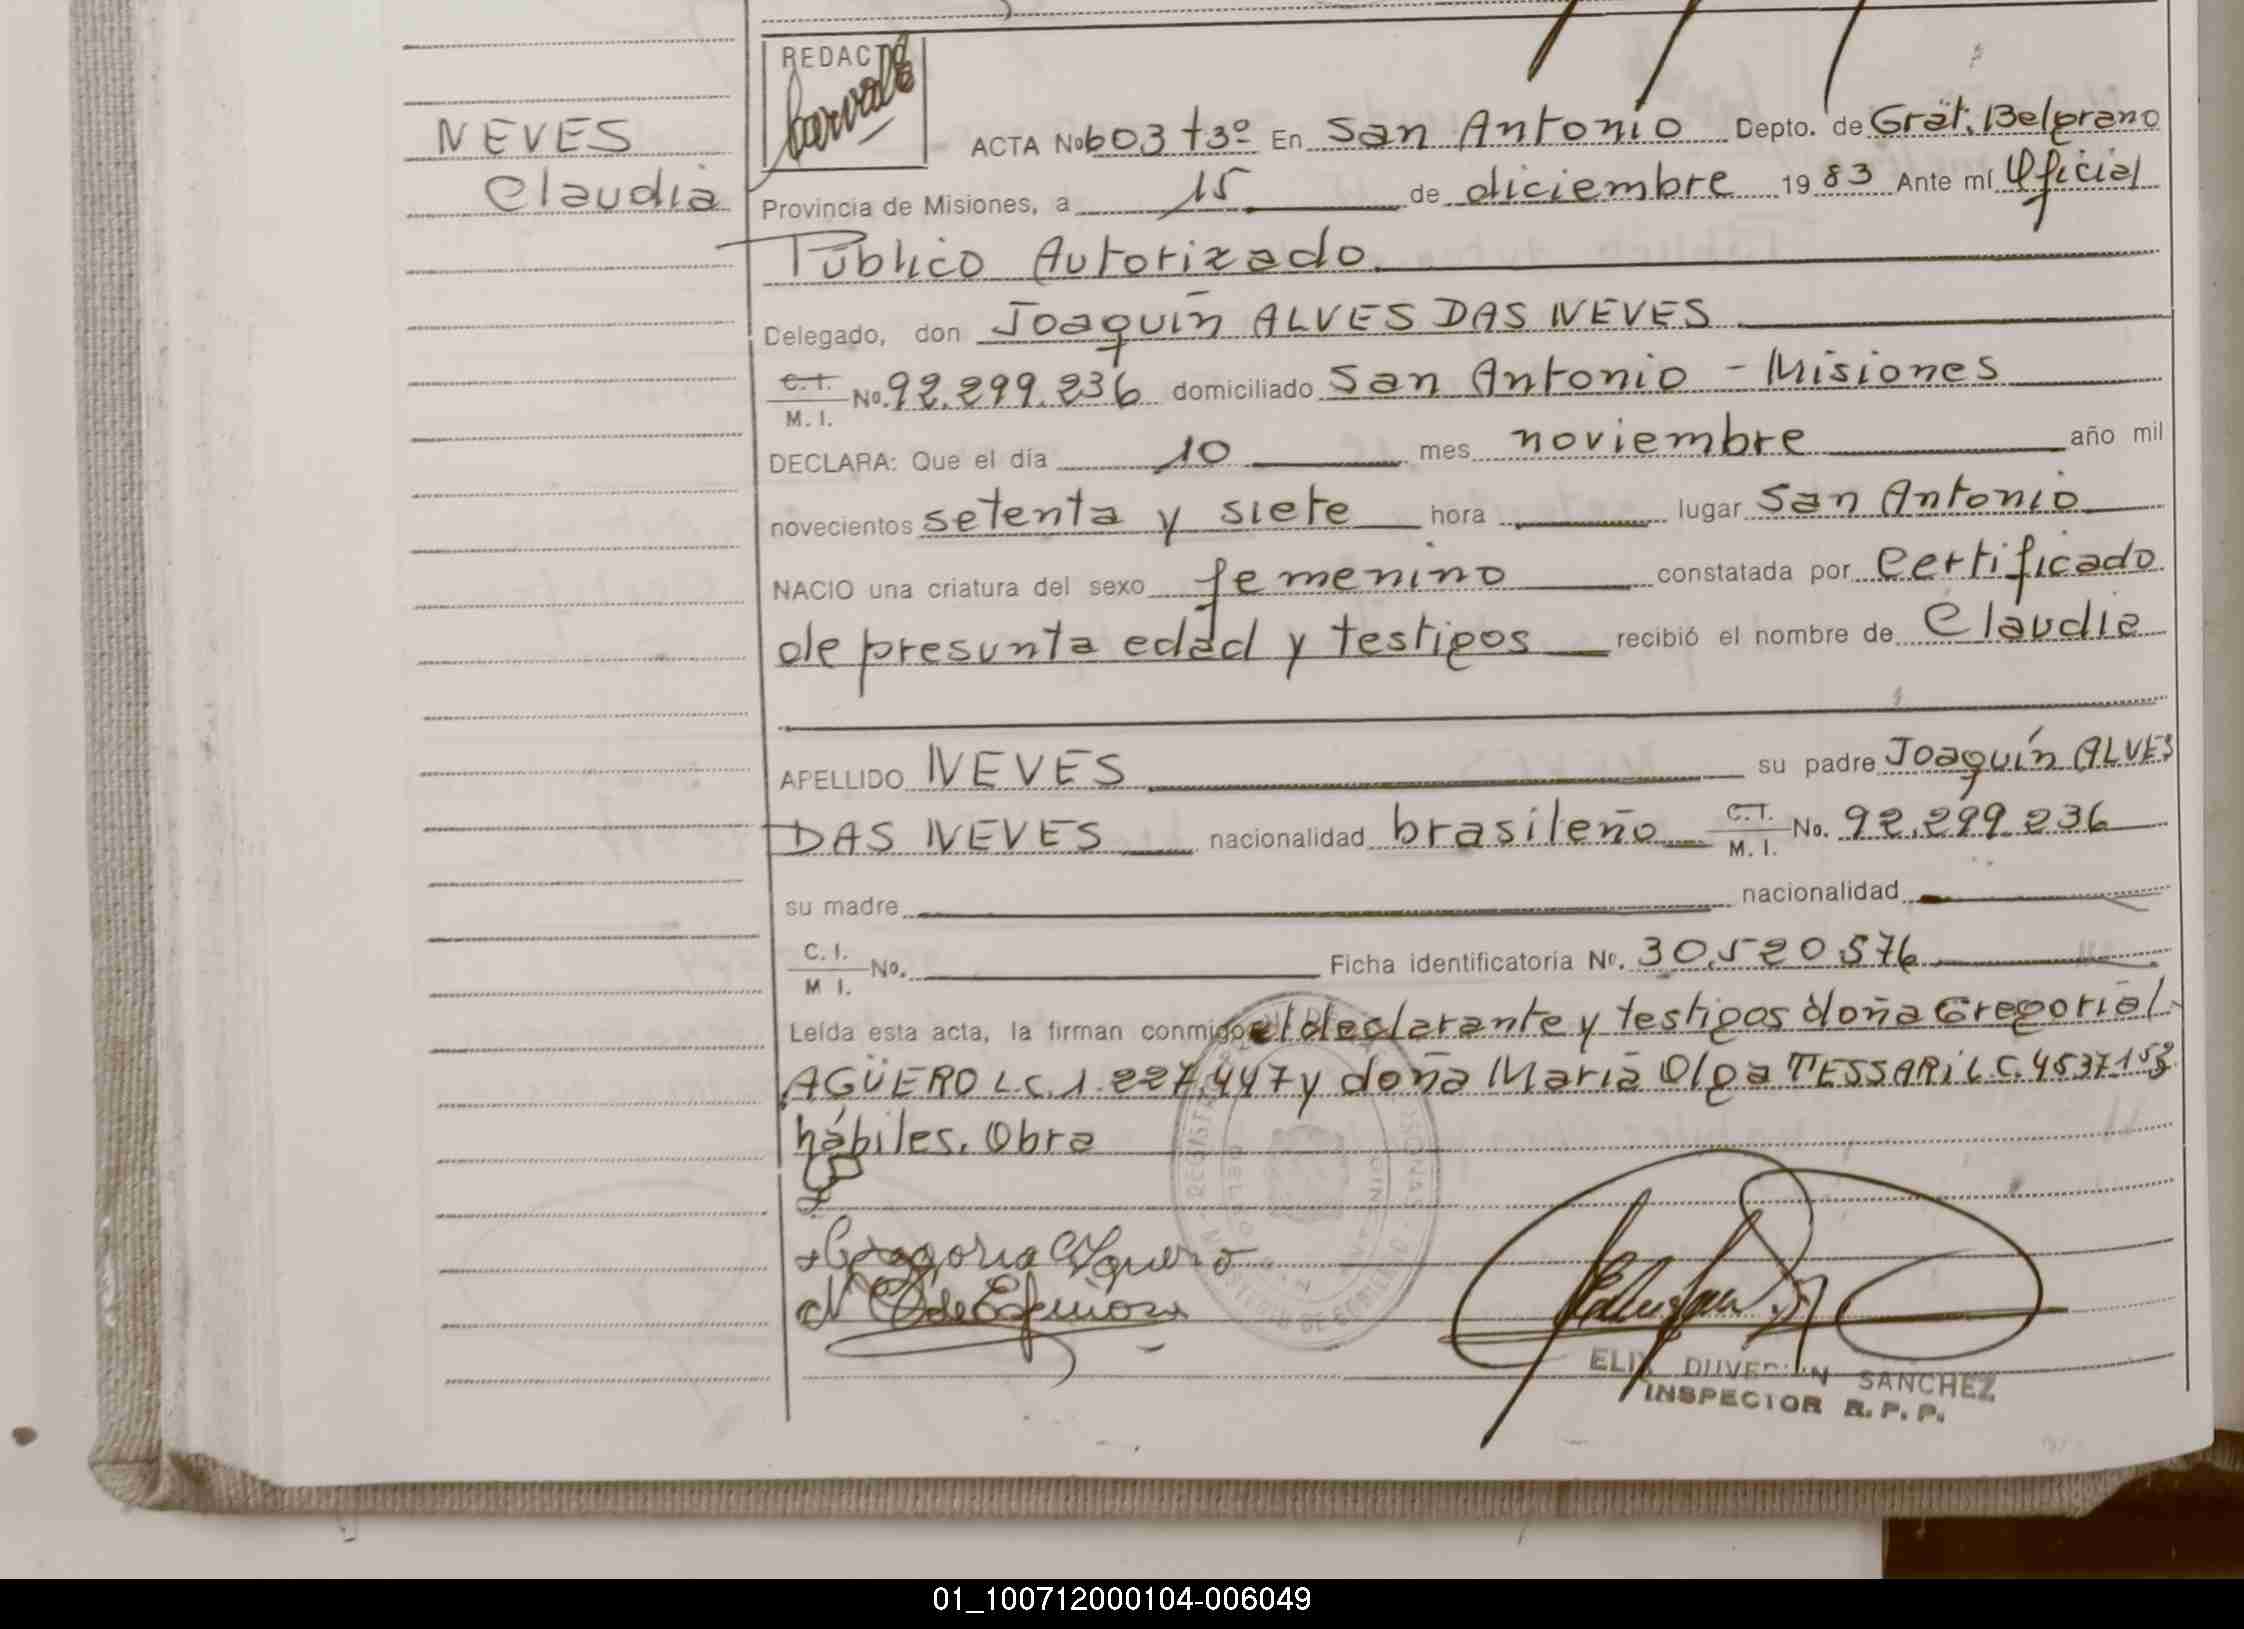 REDACTÓ
NEVES
Claudia
ACTA No 603 t3º En San Antonio Depto. de Gral. Belgrano
Provincia de Misiones, a 15 de diciembre 1983 Ante mí Oficial
Público Autorizado
Delegado, don Joaquín ALVES DAS NEVES
C. I. M. I. No. 92.299.236 domiciliado San Antonio - Misiones
DECLARA: Que el día 10 mes noviembre año mil
novecientos setenta y siete hora lugar San Antonio
NACIO una criatura del sexo femenino constatada por Certificado
de presunta edad y testigos recibió el nombre de Claudia
APELLIDO NEVES su padre Joaquín ALVES
DAS NEVES nacionalidad brasileño C. I. M. I. No. 92.299.236
su madre nacionalidad
C. I. M I. No. Ficha identificatoria No. 30.520.576
Leída esta acta, la firman conmigo el declarante y testigos doña Gregoria
AGÜERO L.C. 1.227.447 y doña María Olga TESSARI L.C. 4537153
hábiles. Obra
Gregoria Agüero
de Espinoza
SANCHEZ
INSPECTOR R. P. P.
01_100712000104-006049